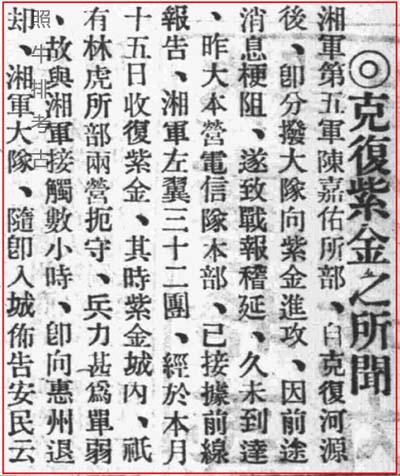 ◎克復紫金之所聞
湘軍第五軍陳嘉佑所部、自克復河源
後、卽分撥大隊向紫金進攻、因前途
消息梗阻、遂致戰報稽延、久未到達
、昨大本營電信隊本部、已接據前線
報告、湘軍左翼三十二團、經於本月
十五日收復紫金、其時紫金城內、祇
有林虎所部兩營扼守、兵力甚爲單弱
、故與湘軍接觸數小時、卽向惠州退
却、湘軍大隊、隨卽入城佈告安民云
照牛排考古